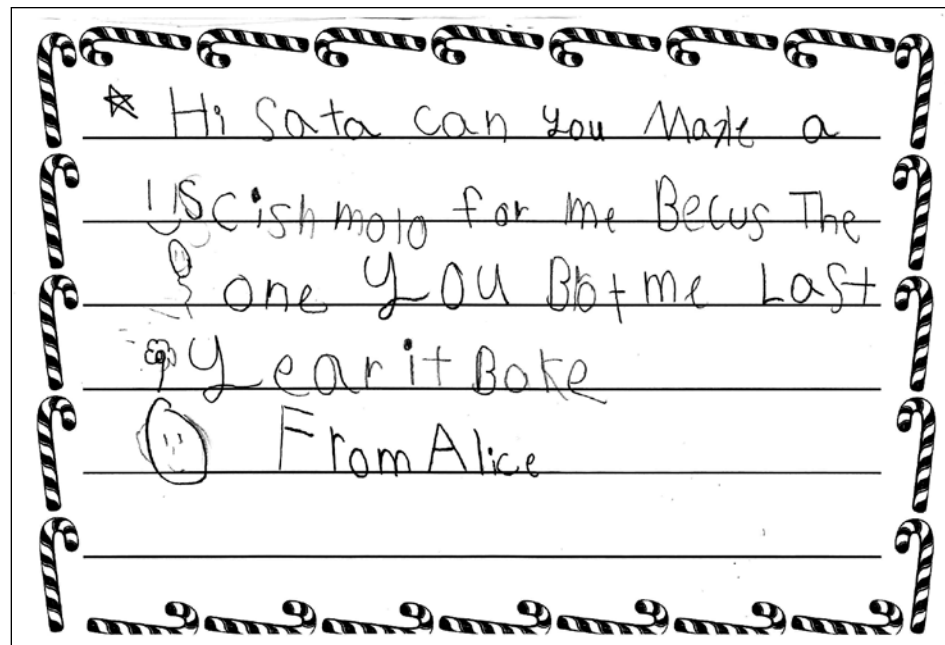 Hi Sata can you Make a
Uscishmolo for me Becus The
one you Brot me Last
Year it Boke
From Alice